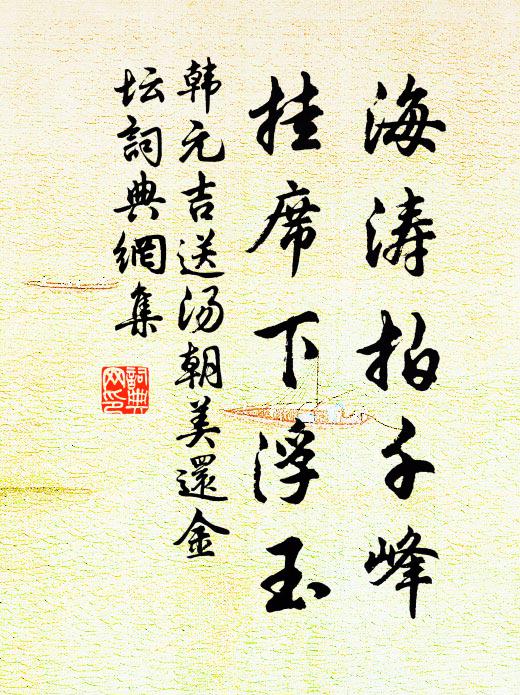 海涛拍千峰
挂席下浮玉
韩元吉送汤朝美還金
坛詞典網集
詞典
网印